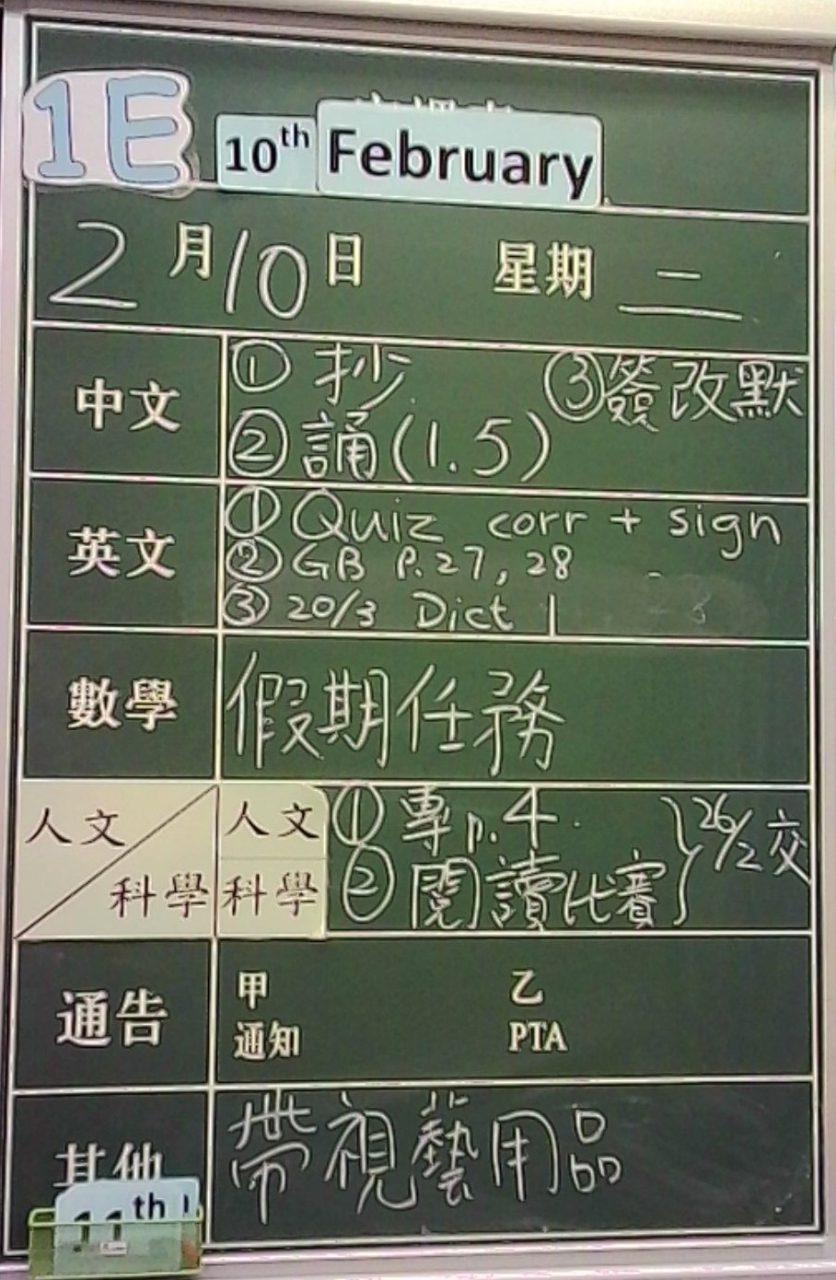 1E
10th February
2月10日 星期二
中文 ①抄 ③簽改默
②誦(1.5)
英文 ①Quiz corr + sign
②GB P.27, 28
③20/3 Dict 1
數學 假期任務
人文 人文 ①專p.4
科學 科學 ②閱讀比賽 } 26/2交
通告 甲 乙
通知 PTA
其他 帶視藝用品
11th